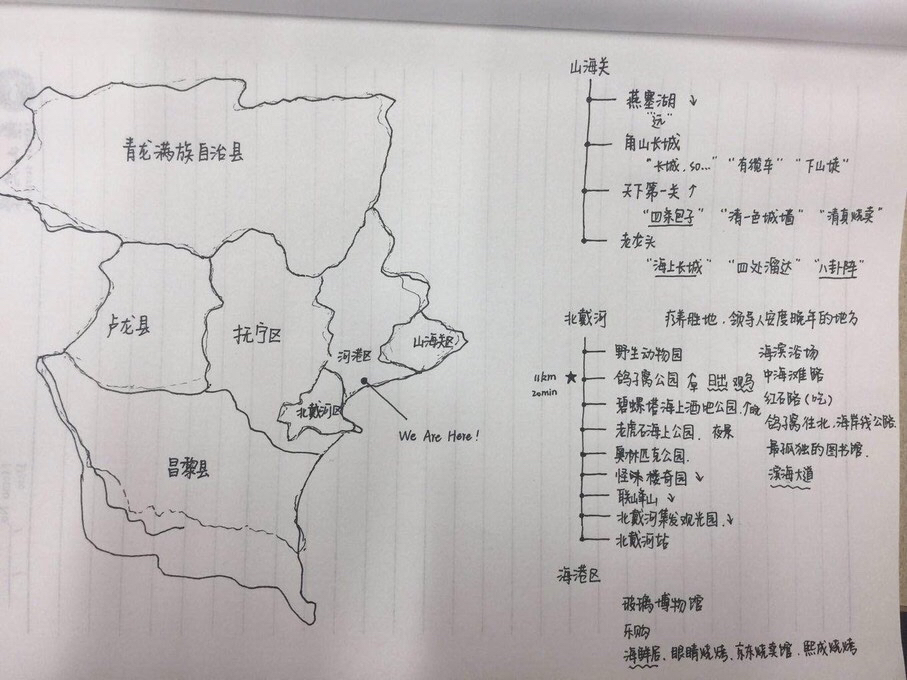 青龙满族自治县
卢龙县
抚宁区
河港区
山海关区
北戴河区
We Are Here!
昌黎县
山海关
燕塞湖 ↓
"远"
角山长城
"长城, so..." "有缆车" "下山徒"
天下第一关 ↑
"四条包子" "清一色城墙" "清真烧卖"
老龙头
"海上长城" "四处溜达" "八卦阵"
北戴河 疗养胜地、领导人安度晚年的地方
野生动物园
11km 20min ★ 鸽子窝公园 ↑ 日出 观鸟
碧螺塔海上酒吧公园、↑晚
老虎石海上公园、夜景
奥林匹克公园
怪味楼奇园 ↓
联峰山 ↓
北戴河集发观光园、↓
北戴河站
海滨浴场
中海滩路
红石路(吃)
鸽子窝往北、海岸线公路
最孤独的图书馆
滨海大道
海港区
玻璃博物馆
乐购
海鲜居、眼睛烧烤、京东烧卖馆、熙成烧烤